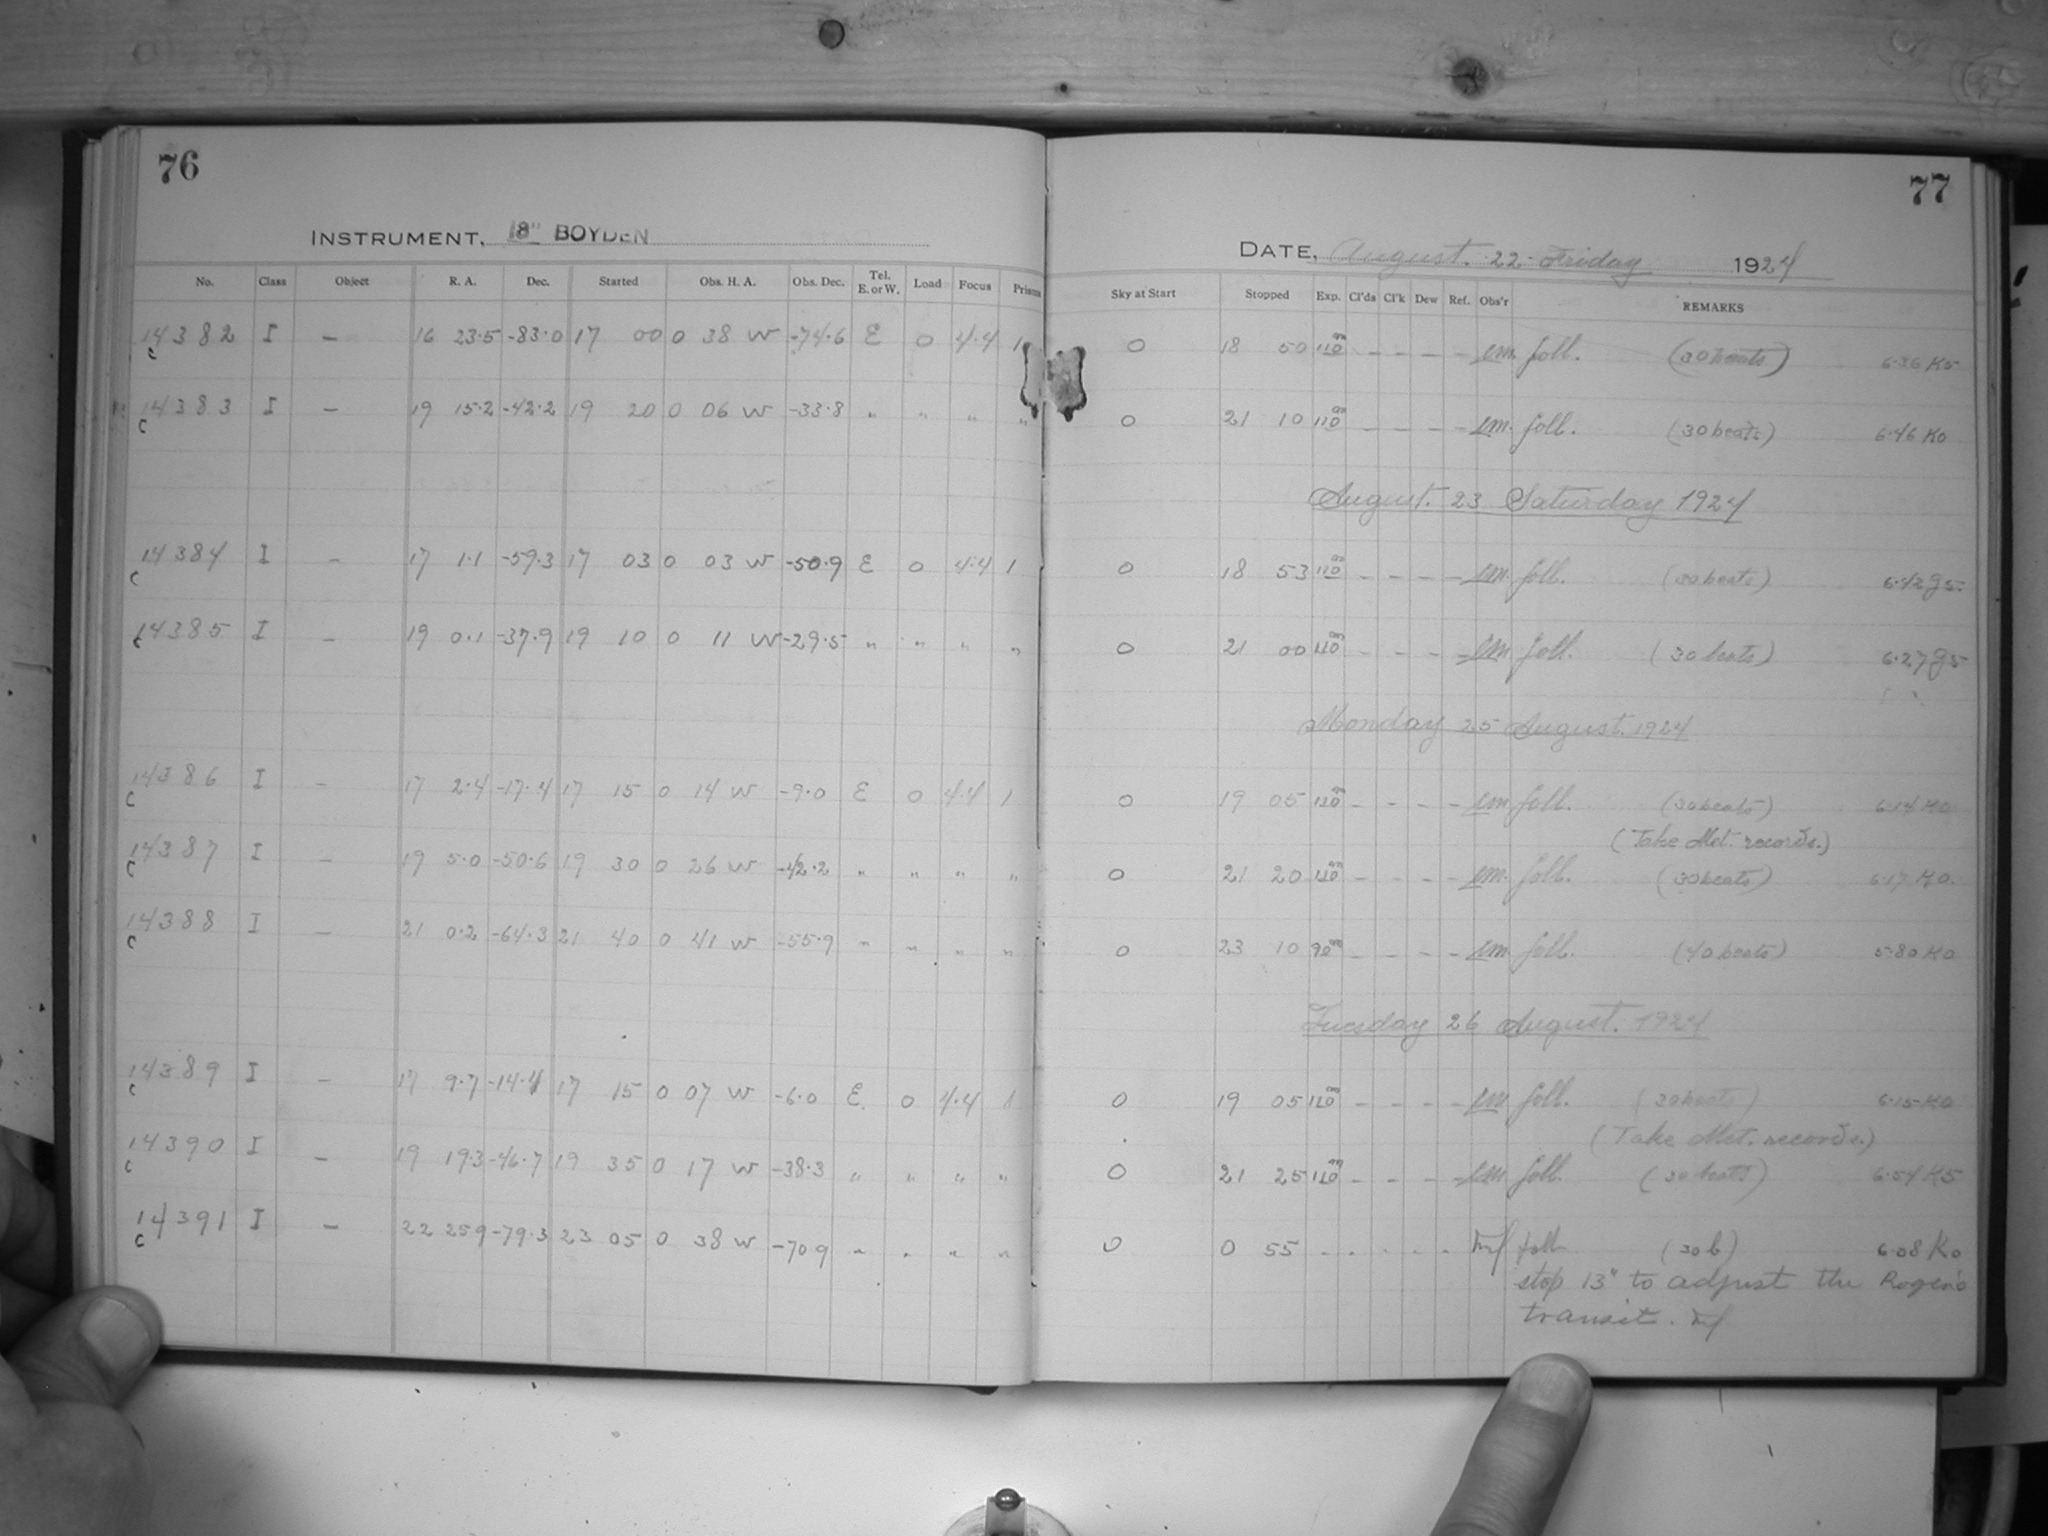 76
INSTRUMENT, 8" BOYDEN
No. Class Object R. A. Dec. Started Obs. H. A. Obs. Dec. Tel. E. or W. Load Focus Prisms
14382 I – 16 23.5 -83.0 17 00 0 38 W -74.6 E 0 4.4 1
c
14383 I – 19 15.2 -42.2 19 20 0 06 W -33.8 " " " "
c
14384 I – 17 1.1 -59.3 17 03 0 03 W -50.9 E 0 4.4 1
c
14385 I – 19 0.1 -37.9 19 10 0 11 W -29.5 " " " "
c
14386 I – 17 2.4 -17.4 17 15 0 14 W -9.0 E 0 4.4 1
c
14387 I – 19 5.0 -50.6 19 30 0 26 W -42.2 " " " "
c
14388 I – 21 0.2 -64.3 21 40 0 41 W -55.9 " " " "
c
14389 I – 17 9.7 -14.4 17 15 0 07 W -6.0 E. 0 4.4 1
c
14390 I – 19 19.3 -46.7 19 35 0 17 W -38.3 " " " "
c
14391 I – 22 25.9 -79.3 23 05 0 38 W -70.9 " " " "
c
77
DATE, August. 22 Friday 1924
Sky at Start Stopped Exp. Cl'ds Cl'k Dew Ref. Obs'r REMARKS
0 18 50 110m – – – – em. foll. (30 beats) 6.36 K5
0 21 10 110m – – – – em. foll. (30 beats) 6.46 K0
August. 23 Saturday 1924
0 18 53 110m – – – – em. foll. (30 beats) 6.42 g5.
0 21 00 110m – – – – em. foll. (30 beats) 6.27 g5
Monday 25 August. 1924
0 19 05 110m – – – – em. foll. (30 beats) 6.14 K0
(Take Met. records.)
0 21 20 110m – – – – em. foll. (30 beats) 6.17 K0.
0 23 10 90m – – – – em. foll. (40 beats) 5.80 K0
Tuesday 26 August. 1924
0 19 05 110m – – – – em foll. (30 beats) 6.15 K0
(Take Met. records.)
0 21 25 110m – – – – em. foll. (30 beats) 6.54 K5
0 0 55 - - - - - foll (30 b) 6.08 K0
stop 13" to adjust the Rogers
transit.